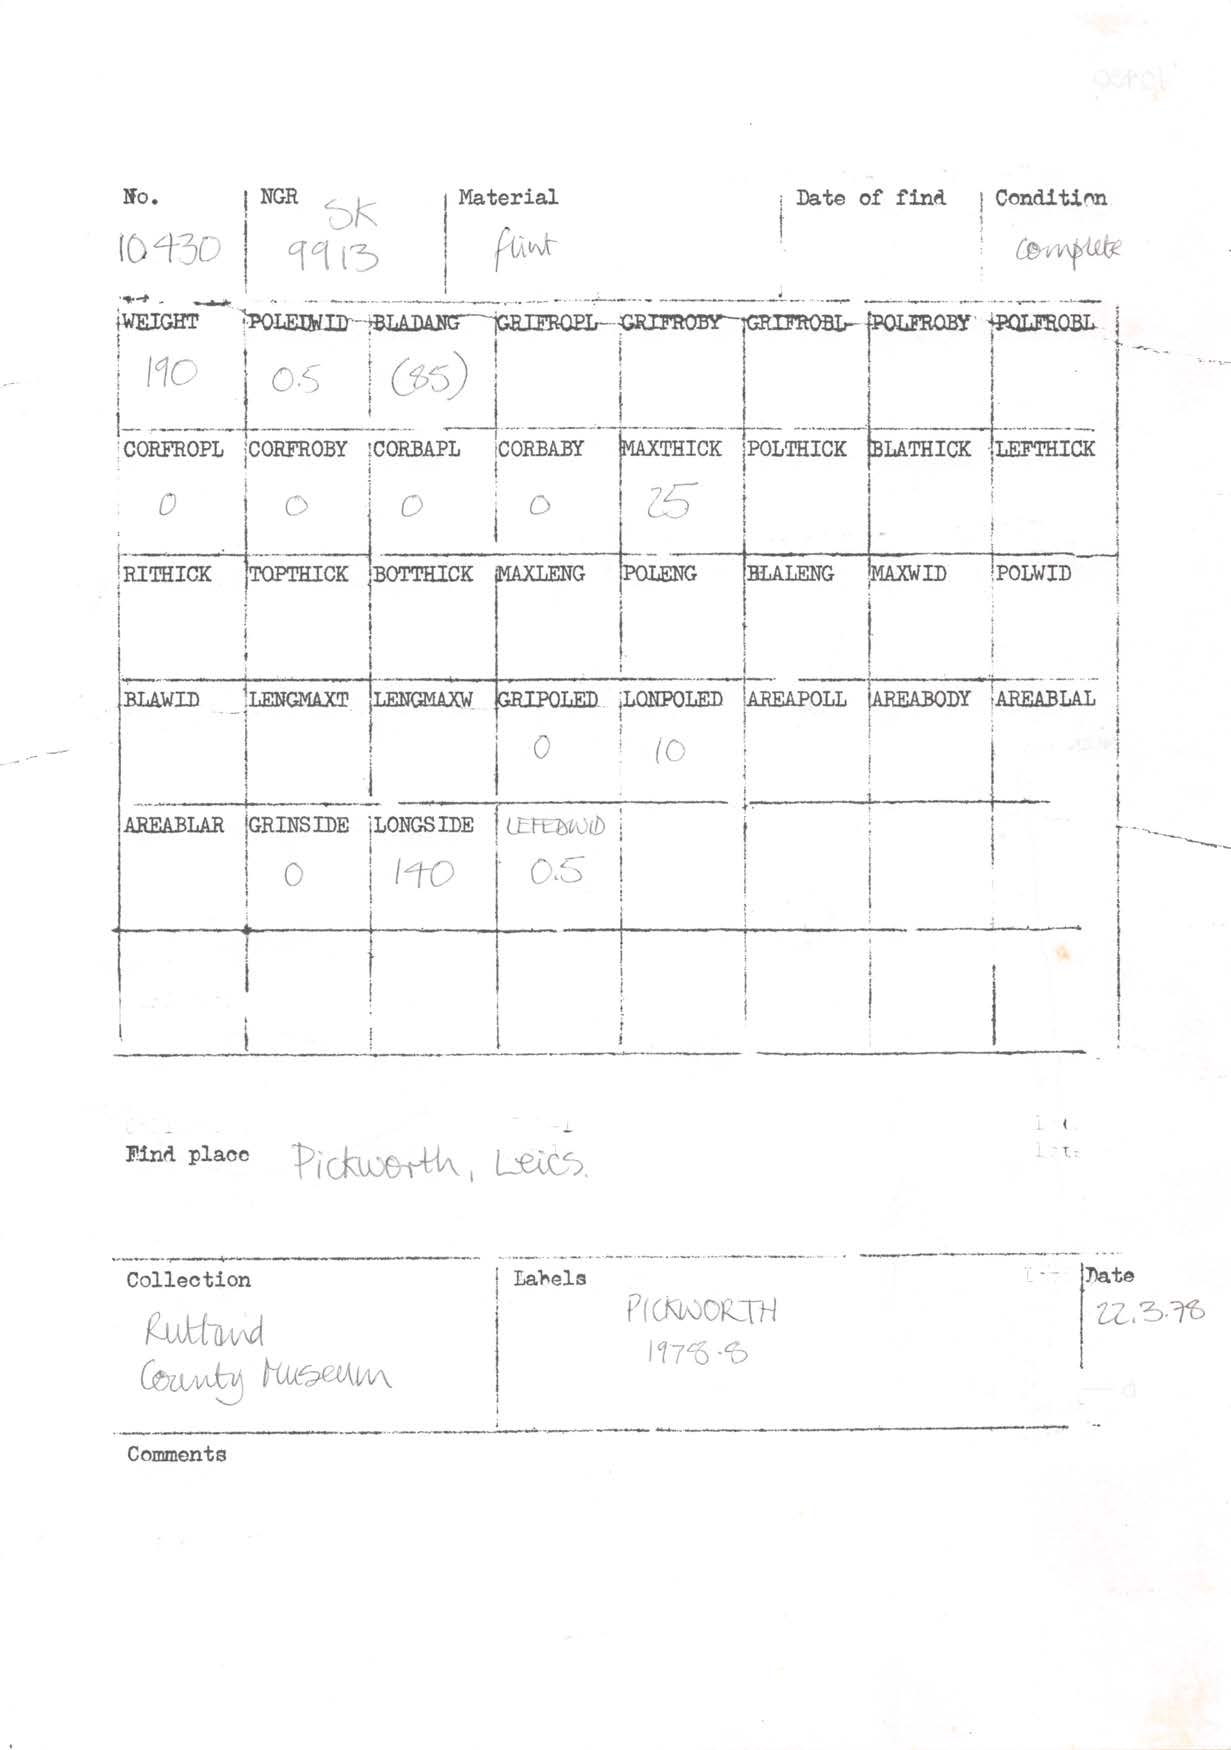 No. NGR Material Date of find Condition
10430 SK 9913 flint complete
WEIGHT POLEDWID BLADANG GRIFROPL GRIFROBY GRIFROBL POLFROBY POLFROBL
190 0.5 (85)
CORFROPL CORFROBY CORBAPL CORBABY MAXTHICK POLTHICK BLATHICK LEFTHICK
0 0 0 0 25
RITHICK TOPTHICK BOTTHICK MAXLENG POLENG BLALENG MAXWID POLWID
BLAWID LENGMAXT LENGMAXW GRIPOLED LONPOLED AREAPOLL AREABODY AREABLAL
0 10
AREABLAR GRINSIDE LONGSIDE LEFEDWID
0 140 0.5
Find place Pickworth, Leics.
Collection Labels Date
Rutland PICKWORTH 22.3.78
County Museum 1978.8
Comments